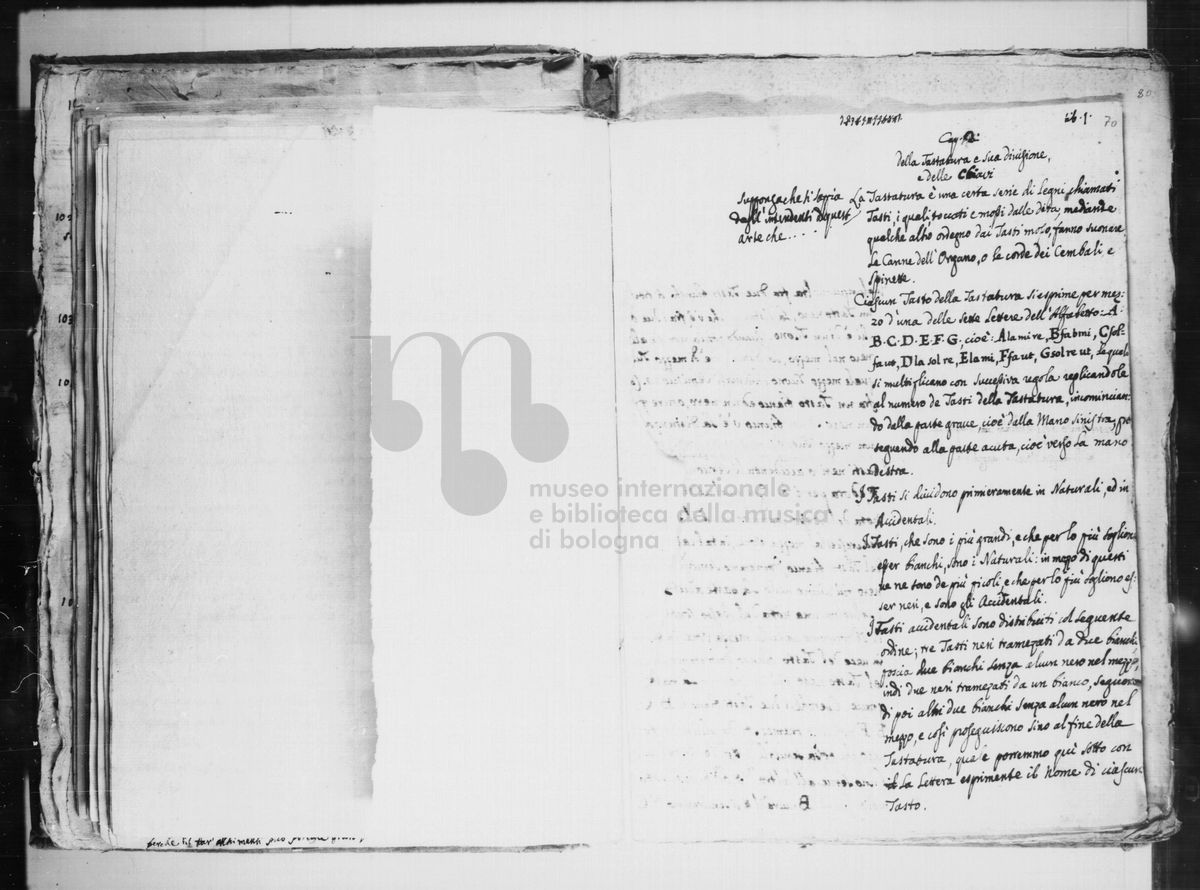 80
70
Cap.
della Tastatura e sua divisione,
e delle Chiavi
Supponga che si sappia
dagl'intendenti di quest'
arte che....
La Tastatura è una certa serie di Legni, chiamati
Tasti, i quali toccati e mossi dalle dita, mediante
qualche altro ordegno dai Tasti mosso, fanno suonare
le Canne dell'Organo, o le corde dei Cembali, e
Spinette.
Ciascun Tasto della Tastatura si esprime per mez:
zo d'una delle sette Lettere dell'Alfabetto: A.
B. C. D. E. F. G., cioè: Alamire, Bfabmi, Csol=
faut, Dlasolre, Elami, Ffaut, Gsolreut, le quali
si multiplicano con successiva regola replicandole
al numero de Tasti della Tastatura, incomincian=
do dalla parte grave, cioè dalla Mano sinistra, pro
seguendo alla parte acuta, cioè verso la mano
destra.
I Tasti si dividono primieramente in Naturali, ed in
Accidentali.
I Tasti, che sono i più grandi, e che per lo più sogliono
esser bianchi, sono i Naturali: in mezo di questi
ve ne sono de più picoli, e che per lo più sogliono es:
ser neri, e sono gli Accidentali.
I Tasti accidentali sono distribuiti col seguente
ordine; tre Tasti neri tramezati da due bianchi
poscia due bianchi senza alcun nero nel mezzo,
indi due neri tramezati da un bianco, seguono
di poi altri due bianchi senza alcun nero nel
mezzo, e così proseguiscono sino al fine della
Tastatura, quale porremmo quì sotto con
la Lettera esprimente il nome di ciascun
Tasto.
museo internazionale
e biblioteca della musica
di bologna